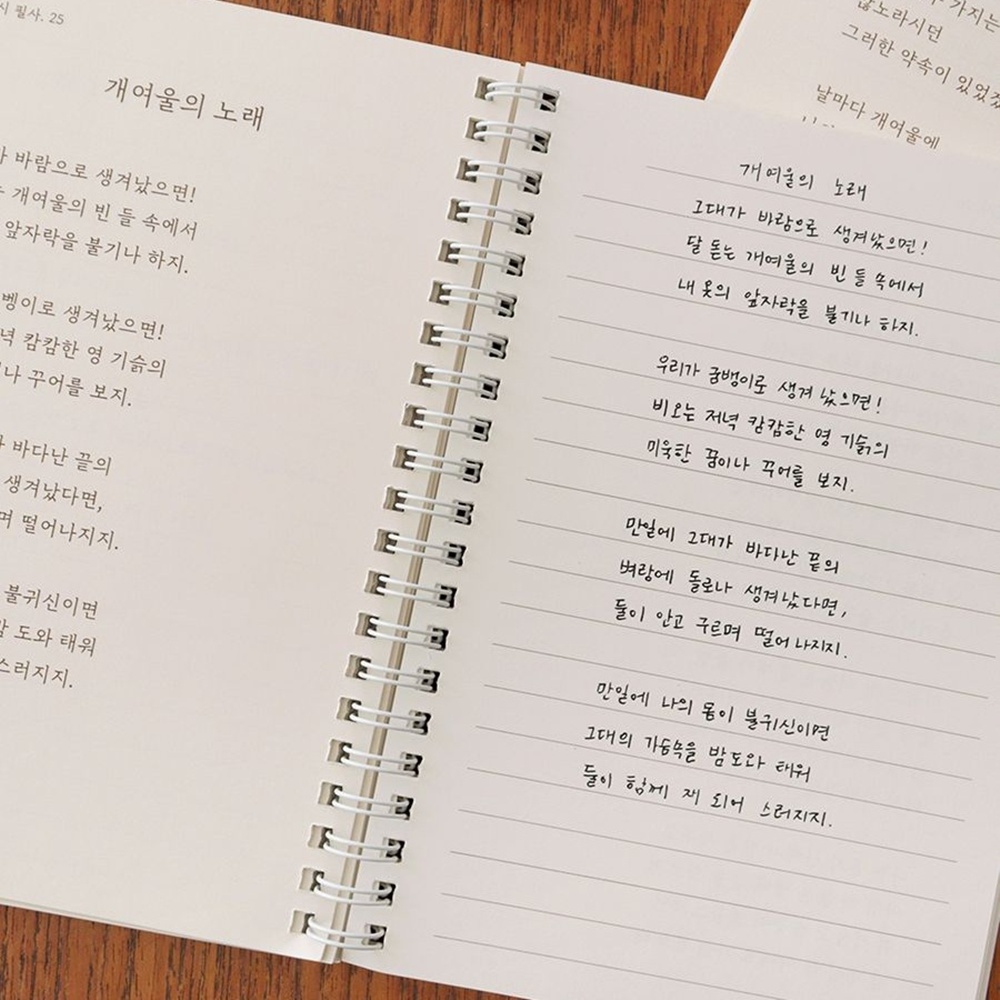 시 필사. 25
개여울의 노래
바람으로 생겨났으면!
개여울의 빈 들 속에서
앞자락을 불기나 하지.
벵이로 생겨났으면!
녁 캄캄한 영 기슭의
나 꾸어를 보지.
바다난 끝의
생겨났다면,
며 떨어나지지.
불귀신이면
도와 태워
스러지지.
개여울의 노래
그대가 바람으로 생겨났으면!
달 돋는 개여울의 빈 들 속에서
내 옷의 앞자락을 불기나 하지.
우리가 굼벵이로 생겨났으면!
비오는 저녁 캄캄한 영 기슭의
미욱한 꿈이나 꾸어를 보지.
만일에 그대가 바다난 끝의
벼랑에 돌로나 생겨났다면,
둘이 안고 구르며 떨어나지지.
만일에 나의 몸이 불귀신이면
그대의 가슴속을 밤도와 태워
둘이 함께 재 되어 스러지지.
가지는
않노라시던
그러한 약속이 있었
날마다 개여울에